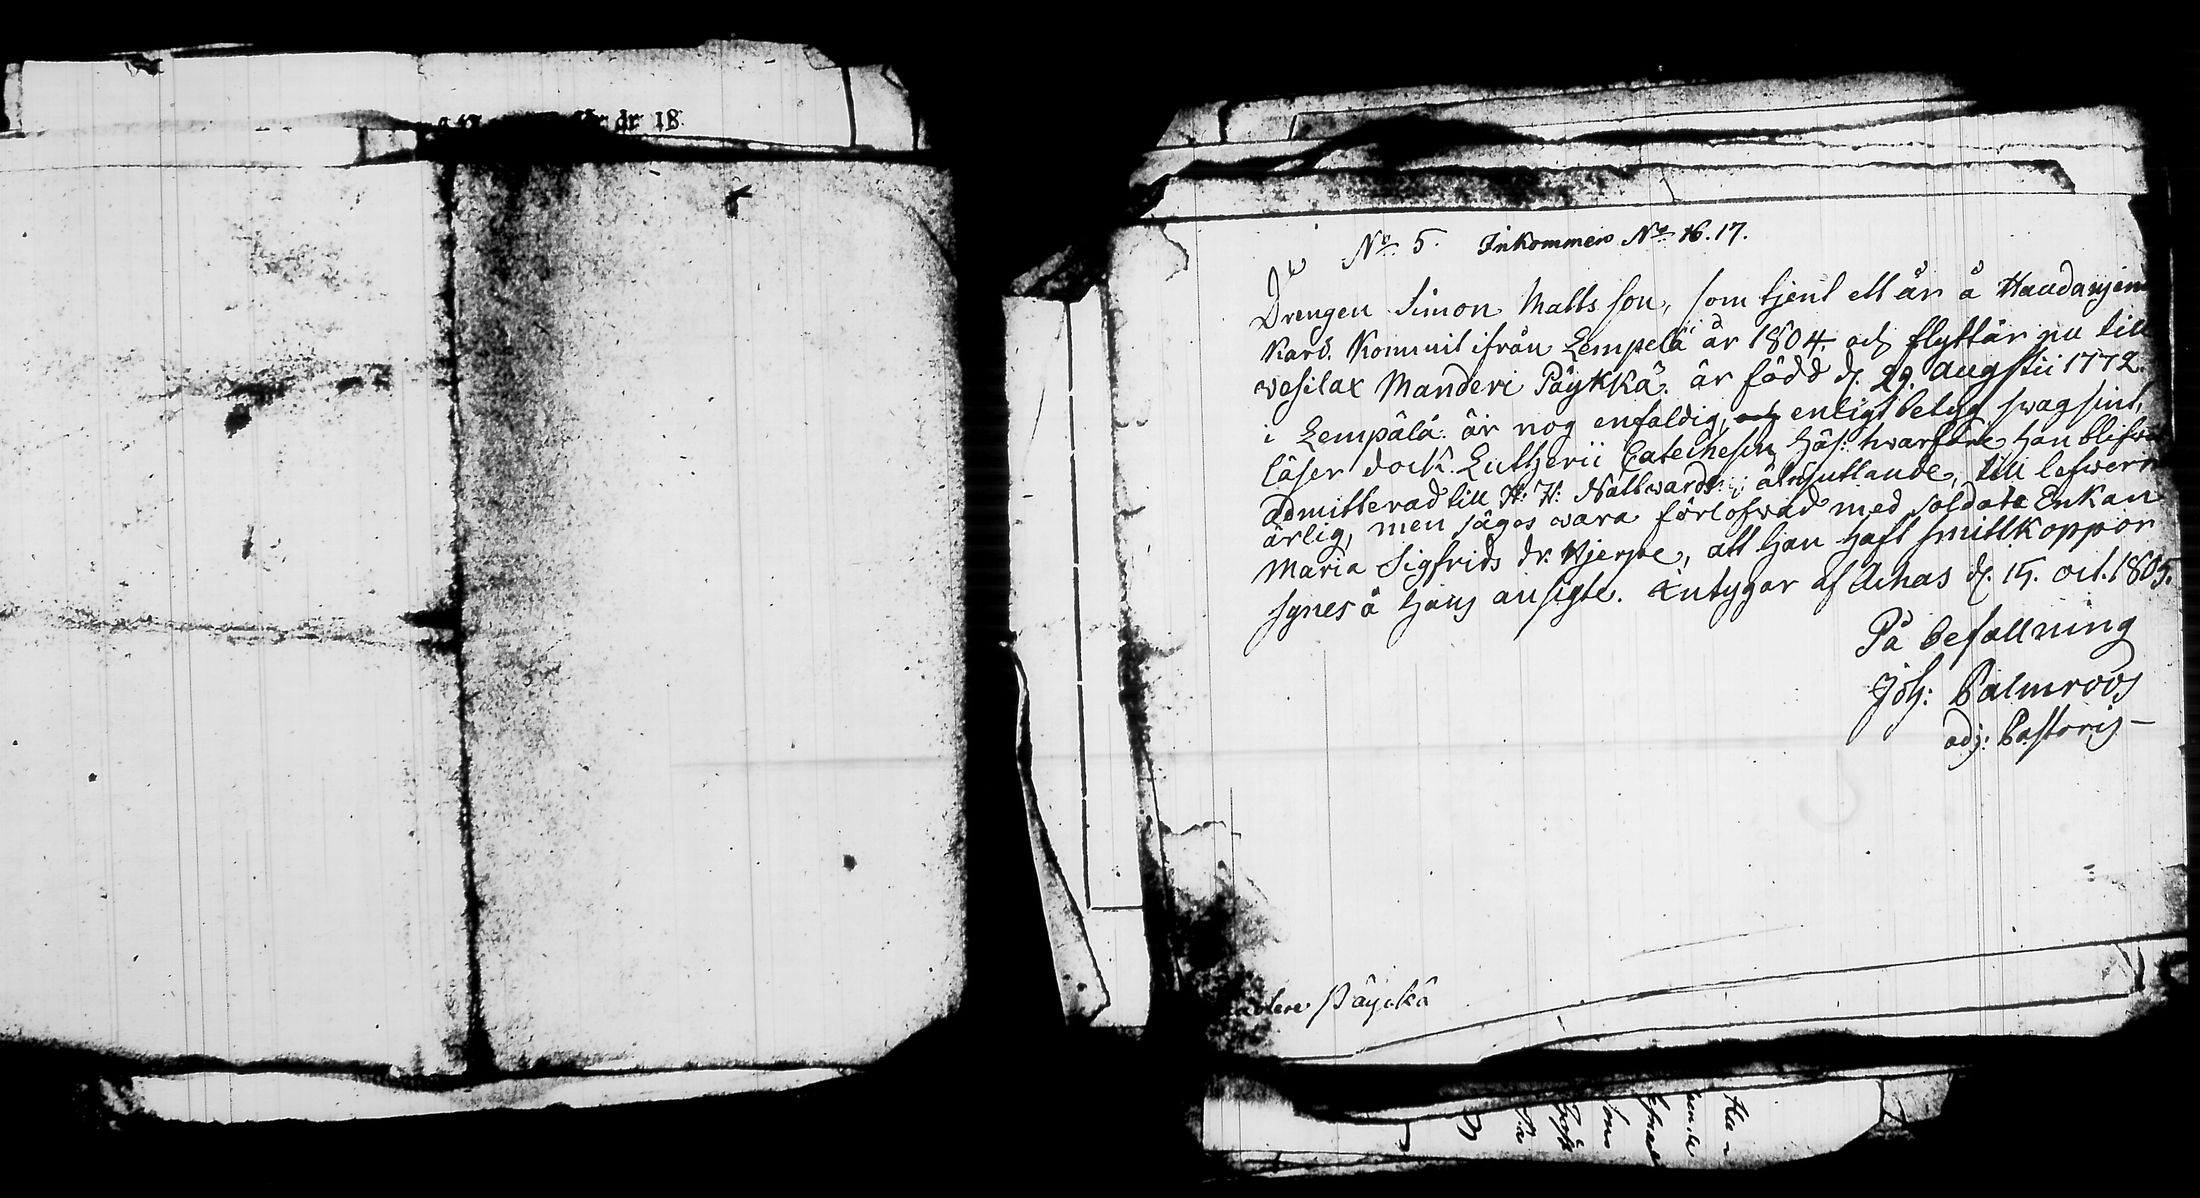 för år 18
No 5. Inkommen No 16. 17.
Drengen Simon Matts son, som tjent ett år å
Karö. Kommit ifrån Lempelä år 1804. och flyttar nu till
wesilax Manderi Päykkä. är född d. 29. Augstii 1772.
i Lempälä. är nog enfaldig, enligt betyg swagsint,
läser dock Lutherii Catechesin hwarföre han blifw
admitterad till H: H: Nattwardz till lefwern
ärlig, men säges wara förlofwad med soldate Enkan
Maria Sigfrids dr. Hjerpe, att han haft smittkoppor
synes å hans ansigte. Intygar af Achas d. 15. oct. 1805.
På befallning
Joh: Palmroos
adj: Pastoris
Päyckä